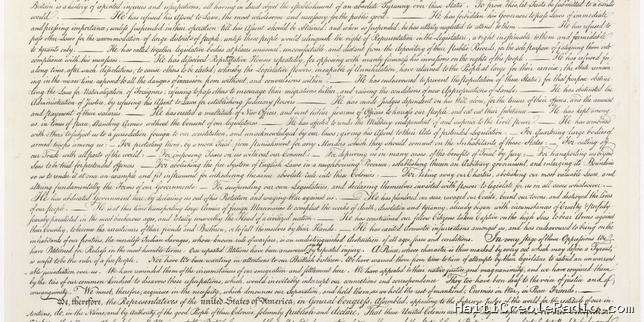 Britain is a history of repeated injuries and usurpations, all having in direct object the establishment of an absolute Tyranny over these States. To prove this, let Facts be submitted to a candid
world. He has refused his Assent to Laws, the most wholesome and necessary for the public good. He has forbidden his Governors to pass Laws of immediate
and pressing importance, unless suspended in their operation till his Assent should be obtained; and when so suspended, he has utterly neglected to attend to them. He has refused to
pass other Laws for the accommodation of large districts of people, unless those people would relinquish the right of Representation in the Legislature, a right inestimable to them and formidable
to tyrants only. He has called together legislative bodies at places unusual, uncomfortable, and distant from the depository of their public Records, for the sole purpose of fatiguing them into
compliance with his measures. He has dissolved Representative Houses repeatedly, for opposing with manly firmness his invasions on the rights of the people. He has refused for
a long time, after such dissolutions, to cause others to be elected; whereby the Legislative powers, incapable of Annihilation, have returned to the People at large for their exercise; the State remain-
ing in the mean time exposed to all the dangers of invasion from without, and convulsions within. He has endeavoured to prevent the population of these States; for that purpose obstruc-
ting the Laws for Naturalization of Foreigners; refusing to pass others to encourage their migrations hither, and raising the conditions of new Appropriations of Lands. He has obstructed the
Administration of Justice, by refusing his Assent to Laws for establishing Judiciary powers. He has made Judges dependent on his Will alone, for the tenure of their offices, and the amount
and payment of their salaries. He has erected a multitude of New Offices, and sent hither swarms of Officers to harrass our people, and eat out their substance. He has kept among
us, in times of peace, Standing Armies without the Consent of our legislatures. He has affected to render the Military independent of and superior to the Civil power. He has combined
with others to subject us to a jurisdiction foreign to our constitution, and unacknowledged by our laws; giving his Assent to their Acts of pretended Legislation: For Quartering large bodies of
armed troops among us: For protecting them, by a mock Trial, from punishment for any Murders which they should commit on the Inhabitants of these States: For cutting off
our Trade with all parts of the world: For imposing Taxes on us without our Consent: For depriving us in many cases, of the benefits of Trial by Jury: For transporting us beyond
Seas to be tried for pretended offences For abolishing the free System of English Laws in a neighbouring Province, establishing therein an Arbitrary government, and enlarging its Boundaries
so as to render it at once an example and fit instrument for introducing the same absolute rule into these Colonies: For taking away our Charters, abolishing our most valuable Laws, and
altering fundamentally the Forms of our Governments: For suspending our own Legislatures, and declaring themselves invested with power to legislate for us in all cases whatsoever.
He has abdicated Government here, by declaring us out of his Protection and waging War against us. He has plundered our seas, ravaged our Coasts, burnt our towns, and destroyed the lives
of our people. He is at this time transporting large Armies of foreign Mercenaries to compleat the works of death, desolation and tyranny, already begun with circumstances of Cruelty & perfidy
scarcely paralleled in the most barbarous ages, and totally unworthy the Head of a civilized nation. He has constrained our fellow Citizens taken Captive on the high Seas to bear Arms against
their Country, to become the executioners of their friends and Brethren, or to fall themselves by their Hands. He has excited domestic insurrections amongst us, and has endeavoured to bring on the
inhabitants of our frontiers, the merciless Indian Savages, whose known rule of warfare, is an undistinguished destruction of all ages, sexes and conditions. In every stage of these Oppressions We
have Petitioned for Redress in the most humble terms: Our repeated Petitions have been answered only by repeated injury. A Prince, whose character is thus marked by every act which may define a Tyrant,
is unfit to be the ruler of a free people. Nor have We been wanting in attentions to our Brittish brethren. We have warned them from time to time of attempts by their legislature to extend an unwarrant-
able jurisdiction over us. We have reminded them of the circumstances of our emigration and settlement here. We have appealed to their native justice and magnanimity, and we have conjured them
by the ties of our common kindred to disavow these usurpations, which, would inevitably interrupt our connections and correspondence. They too have been deaf to the voice of justice and of
consanguinity. We must, therefore, acquiesce in the necessity, which denounces our Separation, and hold them, as we hold the rest of mankind, Enemies in War, in Peace Friends.
We, therefore, the Representatives of the united States of America, in General Congress, Assembled, appealing to the Supreme Judge of the world for the rectitude of our in-
tentions, do, in the Name, and by Authority of the good People of these Colonies, solemnly publish and declare, That these United Colonies